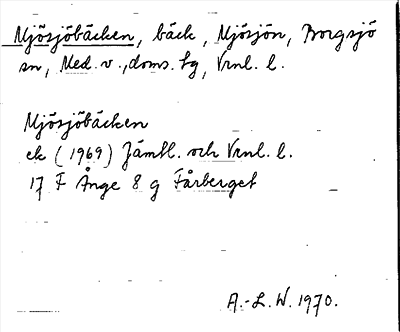 Mjösjöbäcken, bäck, Mjösjön, Borgsjö
sn, Med. v., doms. tg, Vrnl. l.
Mjösjöbäcken
ek (1969) Jämtl. och Vrnl. l.
17 F Ånge 8 g Fårberget
A.-L. W. 1970.